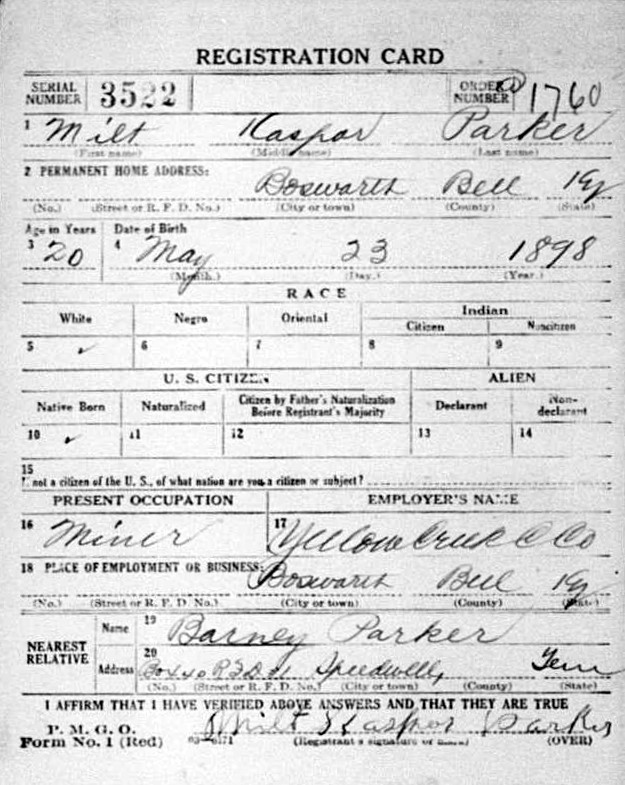 REGISTRATION CARD
SERIAL NUMBER 3522 ORDER NUMBER 1760
1 Milt Kaspar Parker
(First name) (Middle name) (Last name)
2 PERMANENT HOME ADDRESS:
Bosworth Bell Ky
(No.) (Street or R. F. D. No.) (City or town) (County) (State)
Age in Years Date of Birth
3 20 4 May 23 1898
(Month.) (Day.) (Year.)
RACE
White Negro Oriental Indian
Citizen Noncitizen
5 ✓ 6 7 8 9
U. S. CITIZEN ALIEN
Native Born Naturalized Citizen by Father's Naturalization Before Registrant's Majority Declarant Non-declarant
10 ✓ 11 12 13 14
15
If not a citizen of the U. S., of what nation are you a citizen or subject?
PRESENT OCCUPATION EMPLOYER'S NAME
16 Miner 17 Yellow Creek C Co
18 PLACE OF EMPLOYMENT OR BUSINESS:
Bosworth Bell Ky
(No.) (Street or R. F. D. No.) (City or town) (County) (State)
NEAREST RELATIVE
Name 19 Barney Parker
Address 20 Box 40 R F D #1 Speedwell, Tenn
(No.) (Street or R. F. D. No.) (City or town) (County) (State)
I AFFIRM THAT I HAVE VERIFIED ABOVE ANSWERS AND THAT THEY ARE TRUE
P. M. G. O.
Form No. 1 (Red) Milt Kaspar Parker
(Registrant's signature or mark) (OVER)